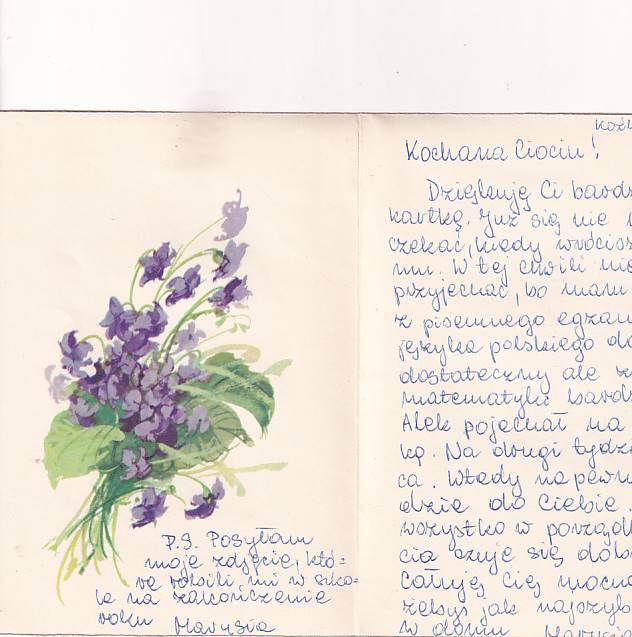 P.S. Posyłam
moje zdjęcie, któ=
re robili mi w szko=
le na zakończenie
roku Marysia
Kochana Ciociu!
Dziękuję Ci bardz
kartkę. Już się nie
czekać, kiedy wrócisz
mu. W tej chwili nie
przyjechać, bo mam
z pisemnego egzam
języka polskiego do
dostateczny ale z
matematyki bardz
Alek pojechał na
kę. Na drugi tydz
ca. Wtedy napewn
dzie do Ciebie.
wszystko w porządk
cia czuje się dob
Całuję Cię mocno
żebyś jak najszyb
w domu Marysia